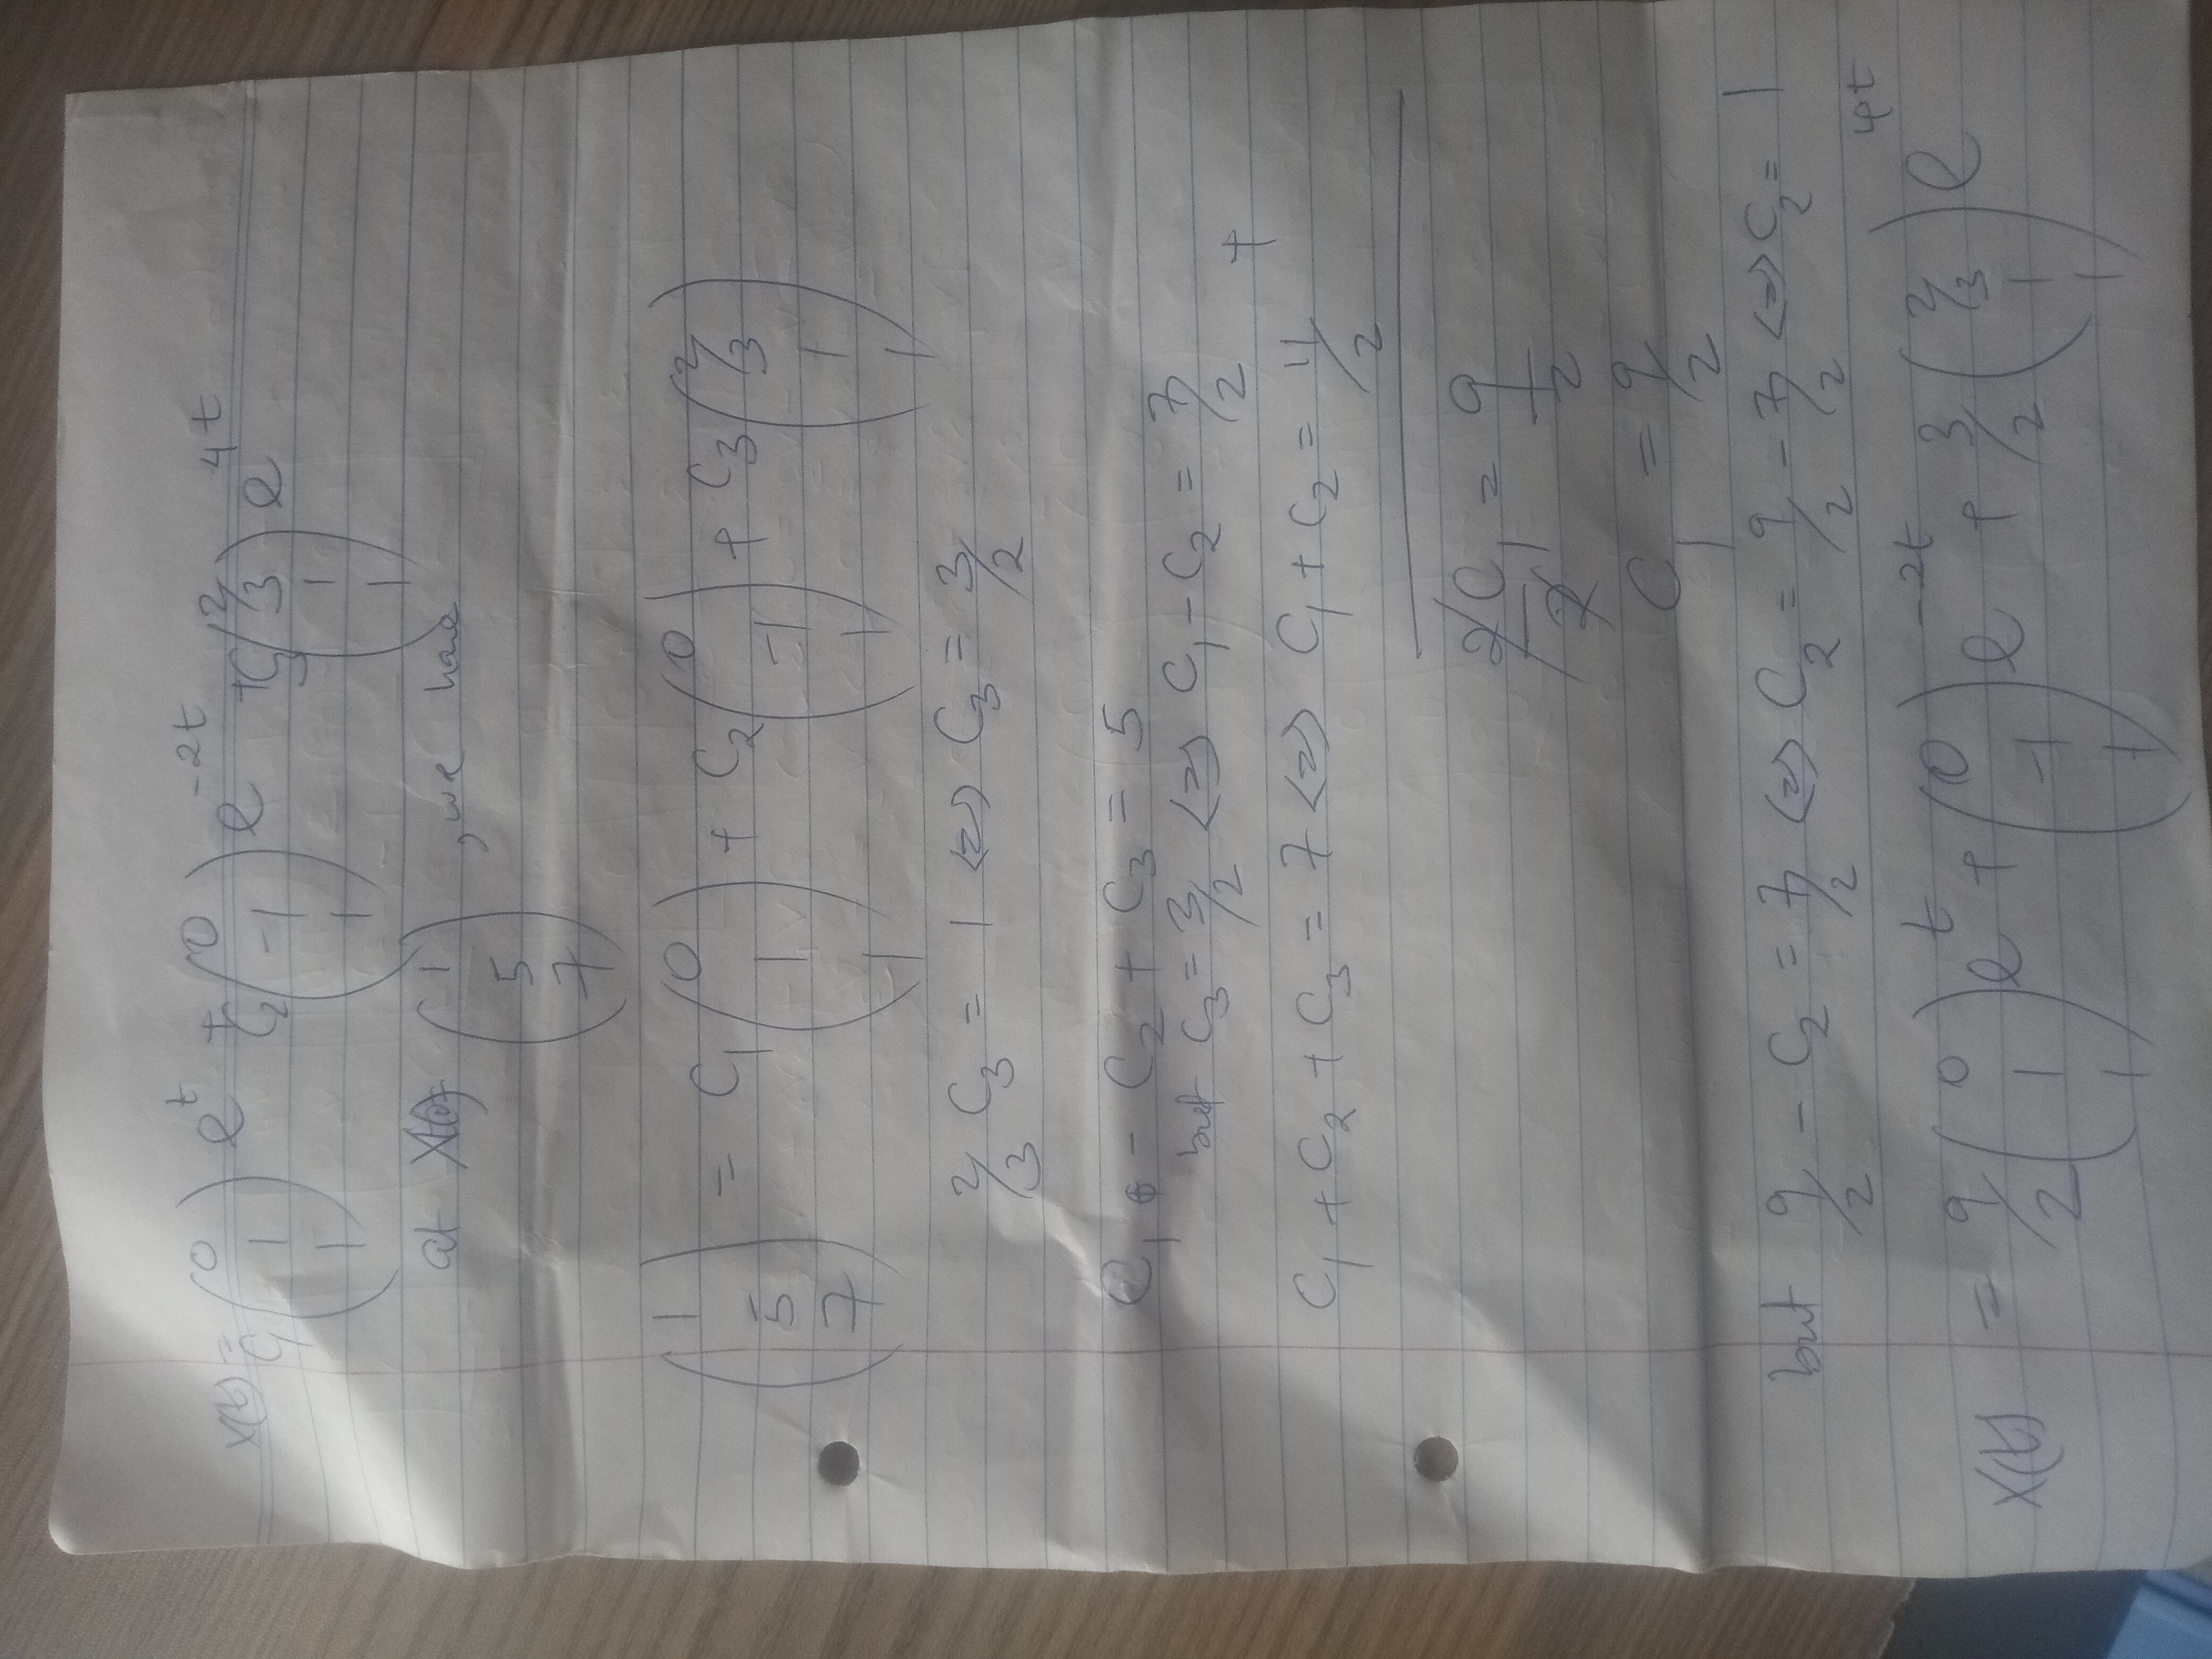 X(t) = C₁ (0 1 1) e^t + C₂ (0 -1 1) e^-2t + C₃ (2/3 1 1) e^4t
at X(0)= (1 5 7) , we have
(1 5 7) = C₁ (0 1 1) + C₂ (0 -1 1) + C₃ (2/3 1 1)
2/3 C₃ = 1 <=> C₃ = 3/2
C₁ - C₂ + C₃ = 5
but C₃ = 3/2 <=> C₁ - C₂ = 7/2
+
C₁ + C₂ + C₃ = 7 <=> C₁ + C₂ = 11/2
2C₁/2 = 9/2
C₁ = 9/2
but 9/2 - C₂ = 7/2 <=> C₂ = 9/2 - 7/2 <=> C₂ = 1
X(t) = 9/2 (0 1 1) e^t + (0 -1 1) e^-2t + 3/2 (2/3 1 1) e^4t